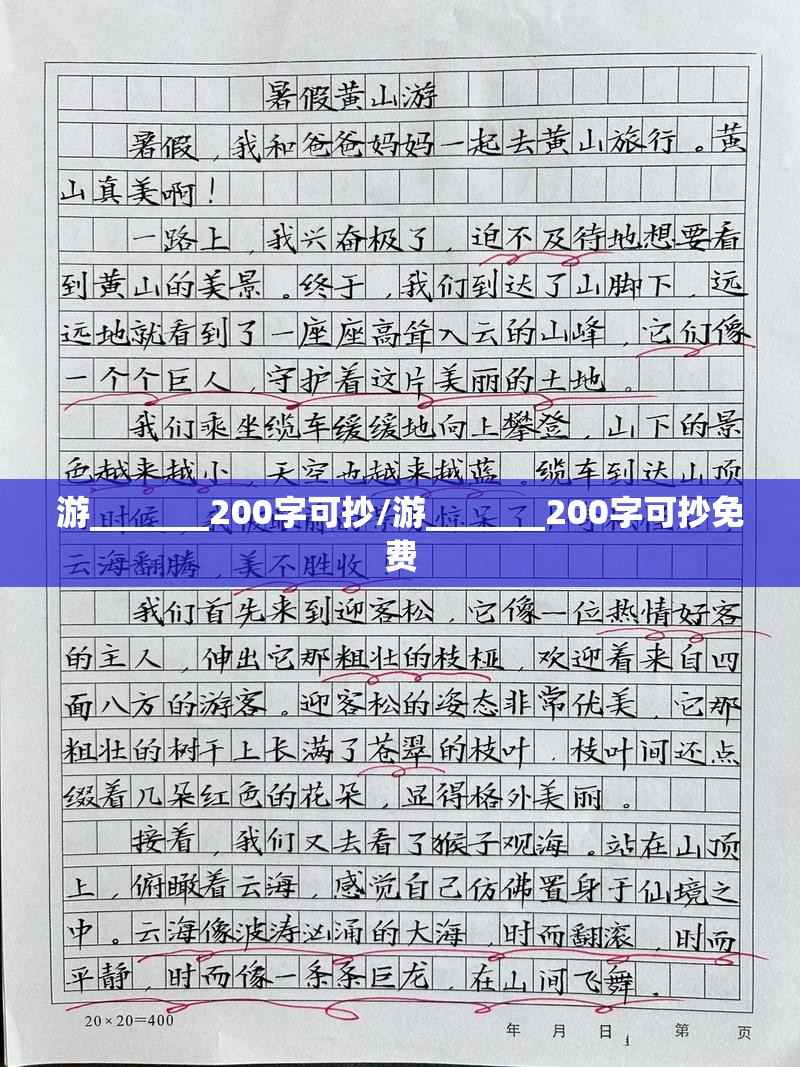 暑假黄山游
暑假，我和爸爸妈妈一起去黄山旅行。黄
山真美啊！
一路上，我兴奋极了，迫不及待地想要看
到黄山的美景。终于，我们到达了山脚下，远
远地就看到了一座座高耸入云的山峰，它们像
一个个巨人，守护着这片美丽的土地。
我们乘坐缆车缓缓地向上攀登，山下的景
色越来越小，天空也越来越蓝。缆车到达山顶
游_______200字可抄/游_______200字可抄免
费
时候，我被眼前的 惊呆了，
云海翻腾，美不胜收
我们首先来到迎客松，它像一位热情好客
的主人，伸出它那粗壮的枝桠，欢迎着来自四
面八方的游客。迎客松的姿态非常优美，它那
粗壮的树干上长满了苍翠的枝叶，枝叶间还点
缀着几朵红色的花朵，显得格外美丽。
接着，我们又去看了猴子观海。站在山顶
上，俯瞰着云海，感觉自己仿佛置身于仙境之
中。云海像波涛汹涌的大海，时而翻滚，时而
平静，时而像一条条巨龙，在山间飞舞。
20×20=400
年 月 日 第 页